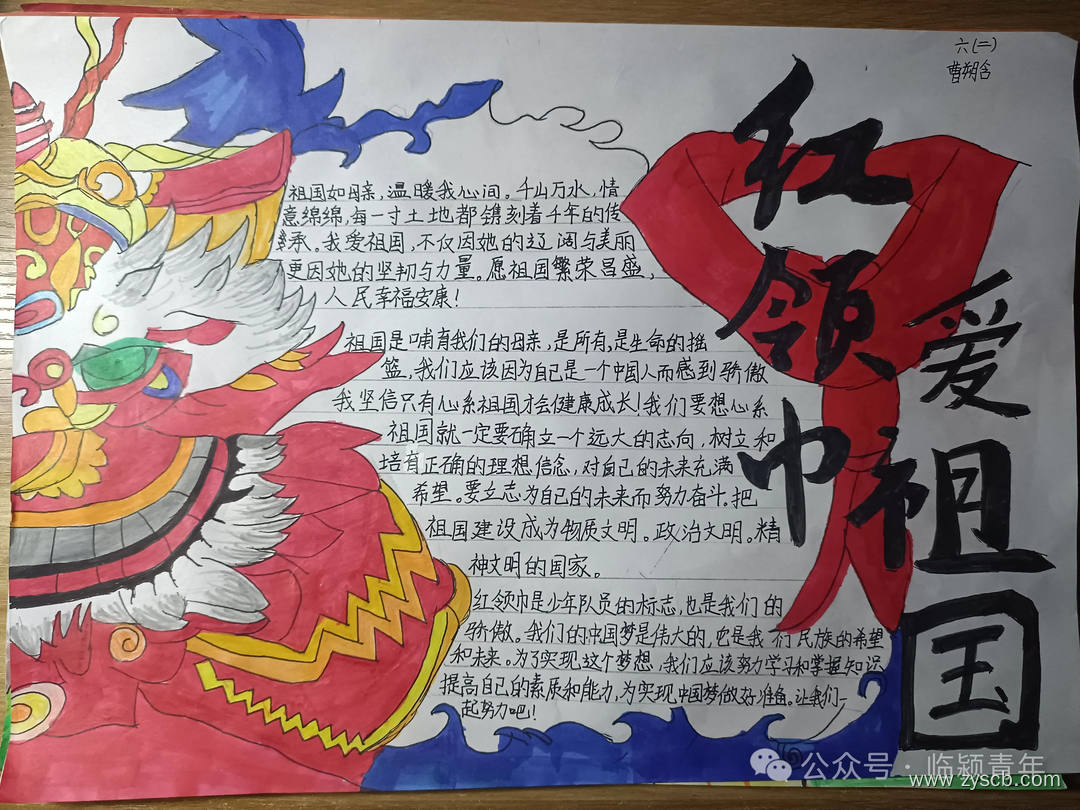 六(二)
曹朔含
红领巾
爱祖国
祖国如母亲，温暖我心间。千山万水，情
意绵绵，每一寸土地都镌刻着千年的传
承。我爱祖国，不仅因她的辽阔与美丽
更因她的坚韧与力量。愿祖国繁荣昌盛，
人民幸福安康！
祖国是哺育我们的母亲，是所有，是生命的摇
篮，我们应该因为自己是一个中国人而感到骄傲
我坚信只有心系祖国才会健康成长！我们要想心系
祖国就一定要确立一个远大的志向，树立和
培育正确的理想信念，对自己的未来充满
希望。要立志为自己的未来而努力奋斗。把
祖国建设成为物质文明。政治文明。精
神文明的国家。
红领巾是少年队员的标志，也是我们的
骄傲。我们的中国梦是伟大的，也是我们民族的希望
和未来。为了实现这个梦想，我们应该努力学习和掌握知识
提高自己的素质和能力，为实现中国梦做好准备。让我们一
起努力吧！
公众号·临颍青年
www.zyscb.com